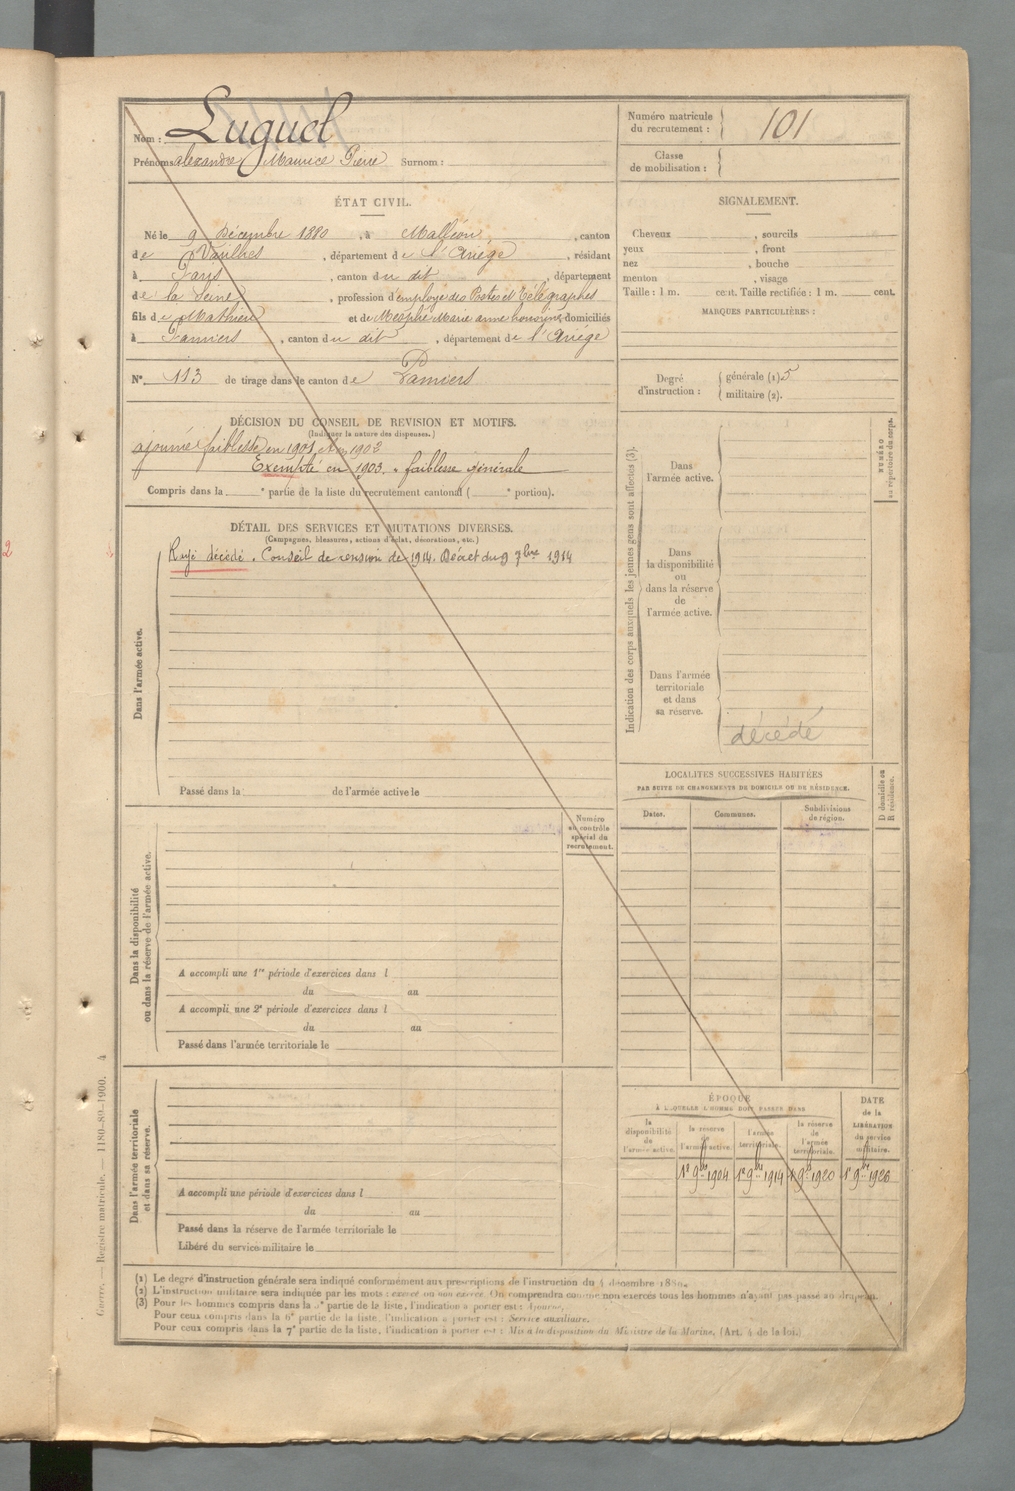 Nom : Luguel
Prénoms alexandre Maurice Pierre Surnom :
Numéro matricule du recrutement : 101
Classe de mobilisation :
ÉTAT CIVIL.
Né le 9 Décembre 1880, à Malléon, canton
de Varilhes, département de l'Ariège, résidant
à Paris, canton du dit, département
de la Seine, profession d'employé des Postes et Télégraphes
fils de Mathieu et de Marie anne domiciliés
à Pamiers, canton du dit, département de l'Ariège
N° 113 de tirage dans le canton de Pamiers
SIGNALEMENT.
Cheveux , sourcils
yeux , front
nez , bouche
menton , visage
Taille : 1 m. cent. Taille rectifiée : 1 m. cent.
MARQUES PARTICULIÈRES :
Degré d'instruction : générale (1) 5
militaire (2).
DÉCISION DU CONSEIL DE REVISION ET MOTIFS.
(Indiquer la nature des dispenses.)
ajourné faiblesse en 1901 et en 1902
Exempté en 1903. faiblesse générale
Compris dans la e partie de la liste du recrutement cantonal ( e portion).
DÉTAIL DES SERVICES ET MUTATIONS DIVERSES.
(Campagnes, blessures, actions d'éclat, décorations, etc.)
2
Rayé décédé. Conseil de revision de 1914. Décret du 9 7bre 1914
Dans l'armée active.
Passé dans la de l'armée active le
Indication des corps auxquels les jeunes gens sont affectés (3).
NUMÉRO au répertoire du corps.
Dans l'armée active.
Dans la disponibilité ou dans la réserve de l'armée active.
Dans l'armée territoriale et dans sa réserve.
décédé
LOCALITÉS SUCCESSIVES HABITÉES
PAR SUITE DE CHANGEMENTS DE DOMICILE OU DE RÉSIDENCE.
Dates.
Communes.
Subdivisions de région.
D domicile ou R résidence.
Numéro au contrôle spécial du recrutement.
Dans la disponibilité ou dans la réserve de l'armée active.
A accompli une 1re période d'exercices dans l
du au
A accompli une 2e période d'exercices dans l
du au
Passé dans l'armée territoriale le
Dans l'armée territoriale et dans sa réserve.
A accompli une période d'exercices dans l
du au
Passé dans la réserve de l'armée territoriale le
Libéré du service militaire le
ÉPOQUE
À LAQUELLE L'HOMME DOIT PASSER DANS
la disponibilité de l'armée active.
la réserve de l'armée active.
l'armée territoriale.
la réserve de l'armée territoriale.
DATE de la LIBÉRATION du service militaire.
1er 9bre 1904
1er 9bre 1914
1er 9bre 1920
1er 9bre 1926
(1) Le degré d'instruction générale sera indiqué conformément aux prescriptions de l'instruction du 4 décembre 1889.
(2) L'instruction militaire sera indiquée par les mots : exercé ou non exercé. On comprendra comme non exercés tous les hommes n'ayant pas passé au drapeau.
(3) Pour les hommes compris dans la 5e partie de la liste, l'indication à porter est : Ajourné.
Pour ceux compris dans la 6e partie de la liste, l'indication à porter est : Service auxiliaire.
Pour ceux compris dans la 7e partie de la liste, l'indication à porter est : Mis à la disposition du Ministre de la Marine. (Art. 4 de la loi.)
Guerre. — Registre matricule. — 1180-89-1900. 4